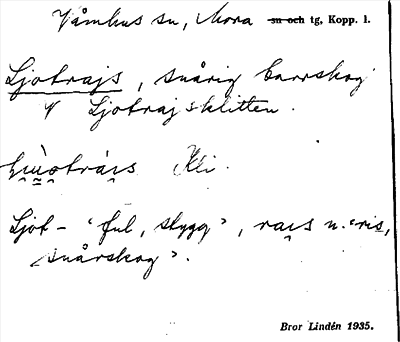 Våmhus sn, Mora ~~sn och~~ tg, Kopp. l.
Ljotrajs, snårig barrskog
V Ljotrajsklitten.
Kli.
Ljot- ‘ful, stygg’, rais n. ‘ris,
snårskog’.
Bror Lindén 1935.